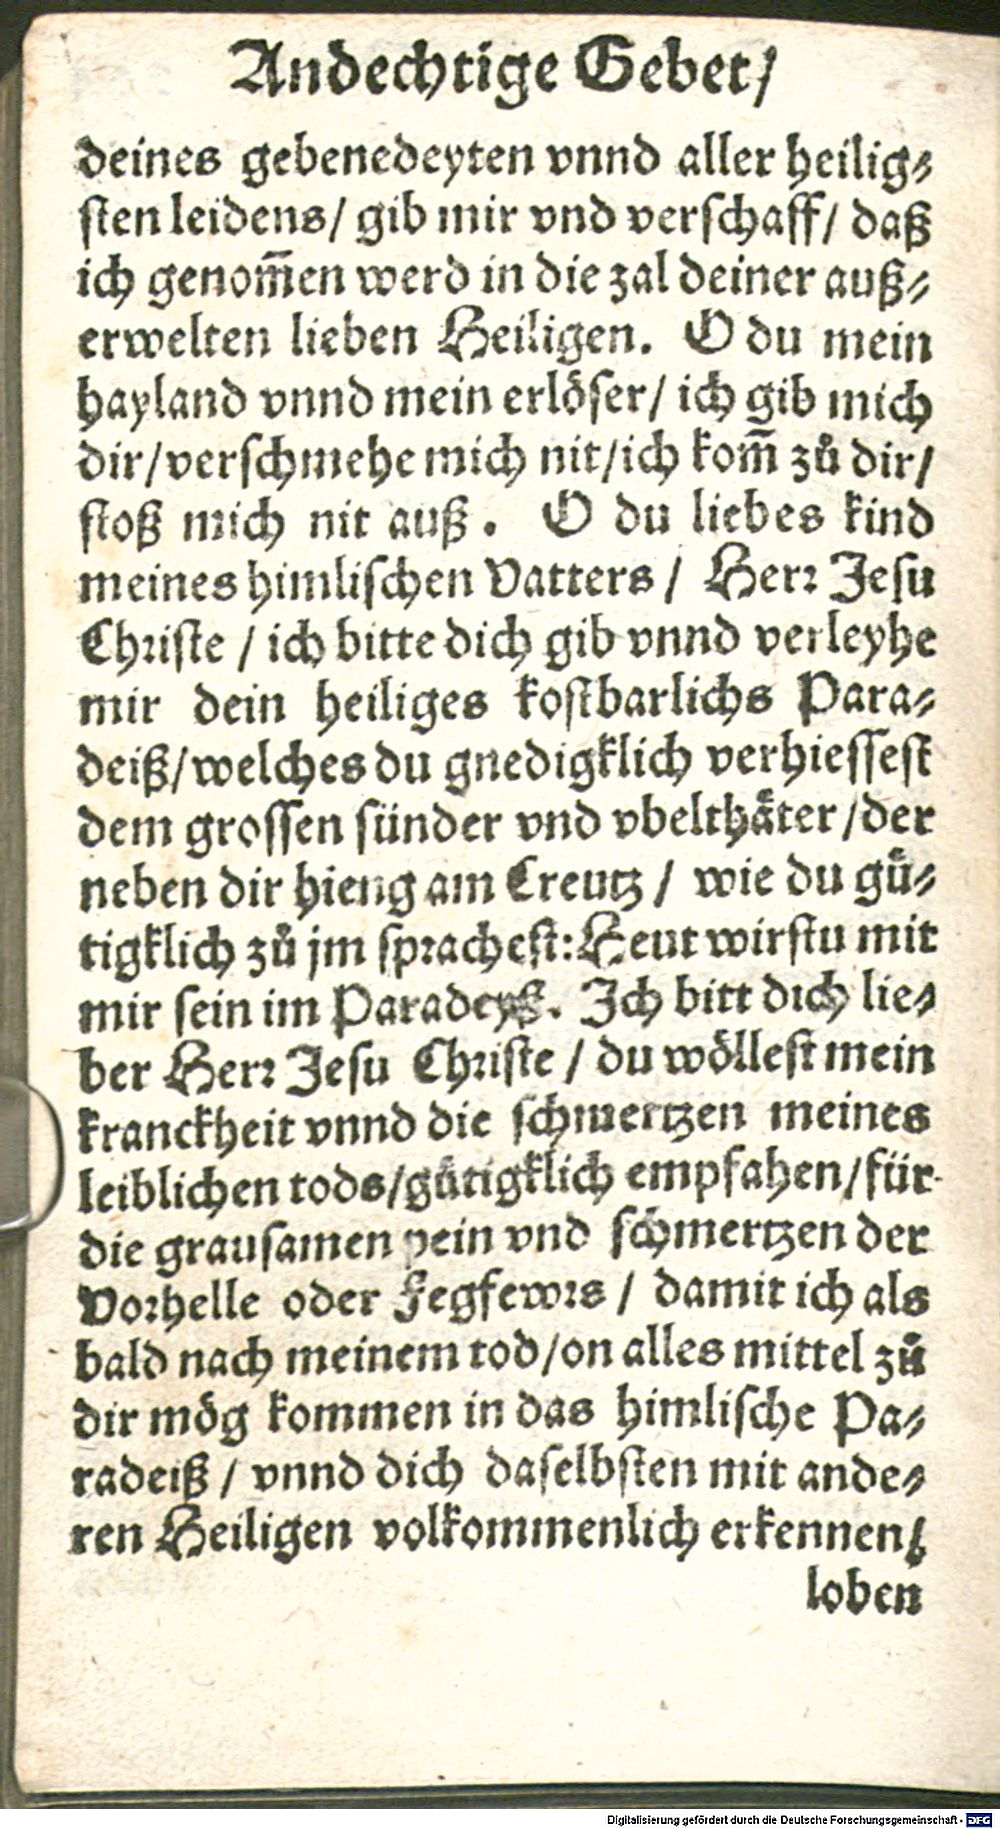 Andechtige Gebet/
deines gebenedeyten vnnd aller heilig⸗
sten leidens/ gib mir vnd verschaff/ daß
ich genom̃en werd in die zal deiner auß⸗
erwelten lieben Heiligen. O du mein
hayland vnnd mein erlöser/ ich gib mich
dir/verschmehe mich nit/ich kom̃ zů dir/
stoß mich nit auß. O du liebes kind
meines himlischen Vatters / Herr Jesu
Christe / ich bitte dich gib vnnd verleyhe
mir dein heiliges kostbarlichs Para⸗
deiß/welches du gnedigklich verhiessest
dem grossen sünder vnd vbelthäter/der
neben dir hieng am Creutz / wie du gü⸗
tigklich zů jm sprachest: Heut wirstu mit
mir sein im Paradeyß. Ich bitt dich lie⸗
ber Herr Jesu Christe / du wöllest mein
kranckheit vnnd die schmertzen meines
leiblichen tods/gütigklich empfahen/für
die grausamen pein vnd schmertzen der
Vorhelle oder Fegfewrs / damit ich als
bald nach meinem tod/on alles mittel zů
dir mög kommen in das himlische Pa⸗
radeiß / vnnd dich daselbsten mit ande⸗
ren Heiligen volkommenlich erkennen/
loben
Digitalisierung gefördert durch die Deutsche Forschungsgemeinschaft - DFG